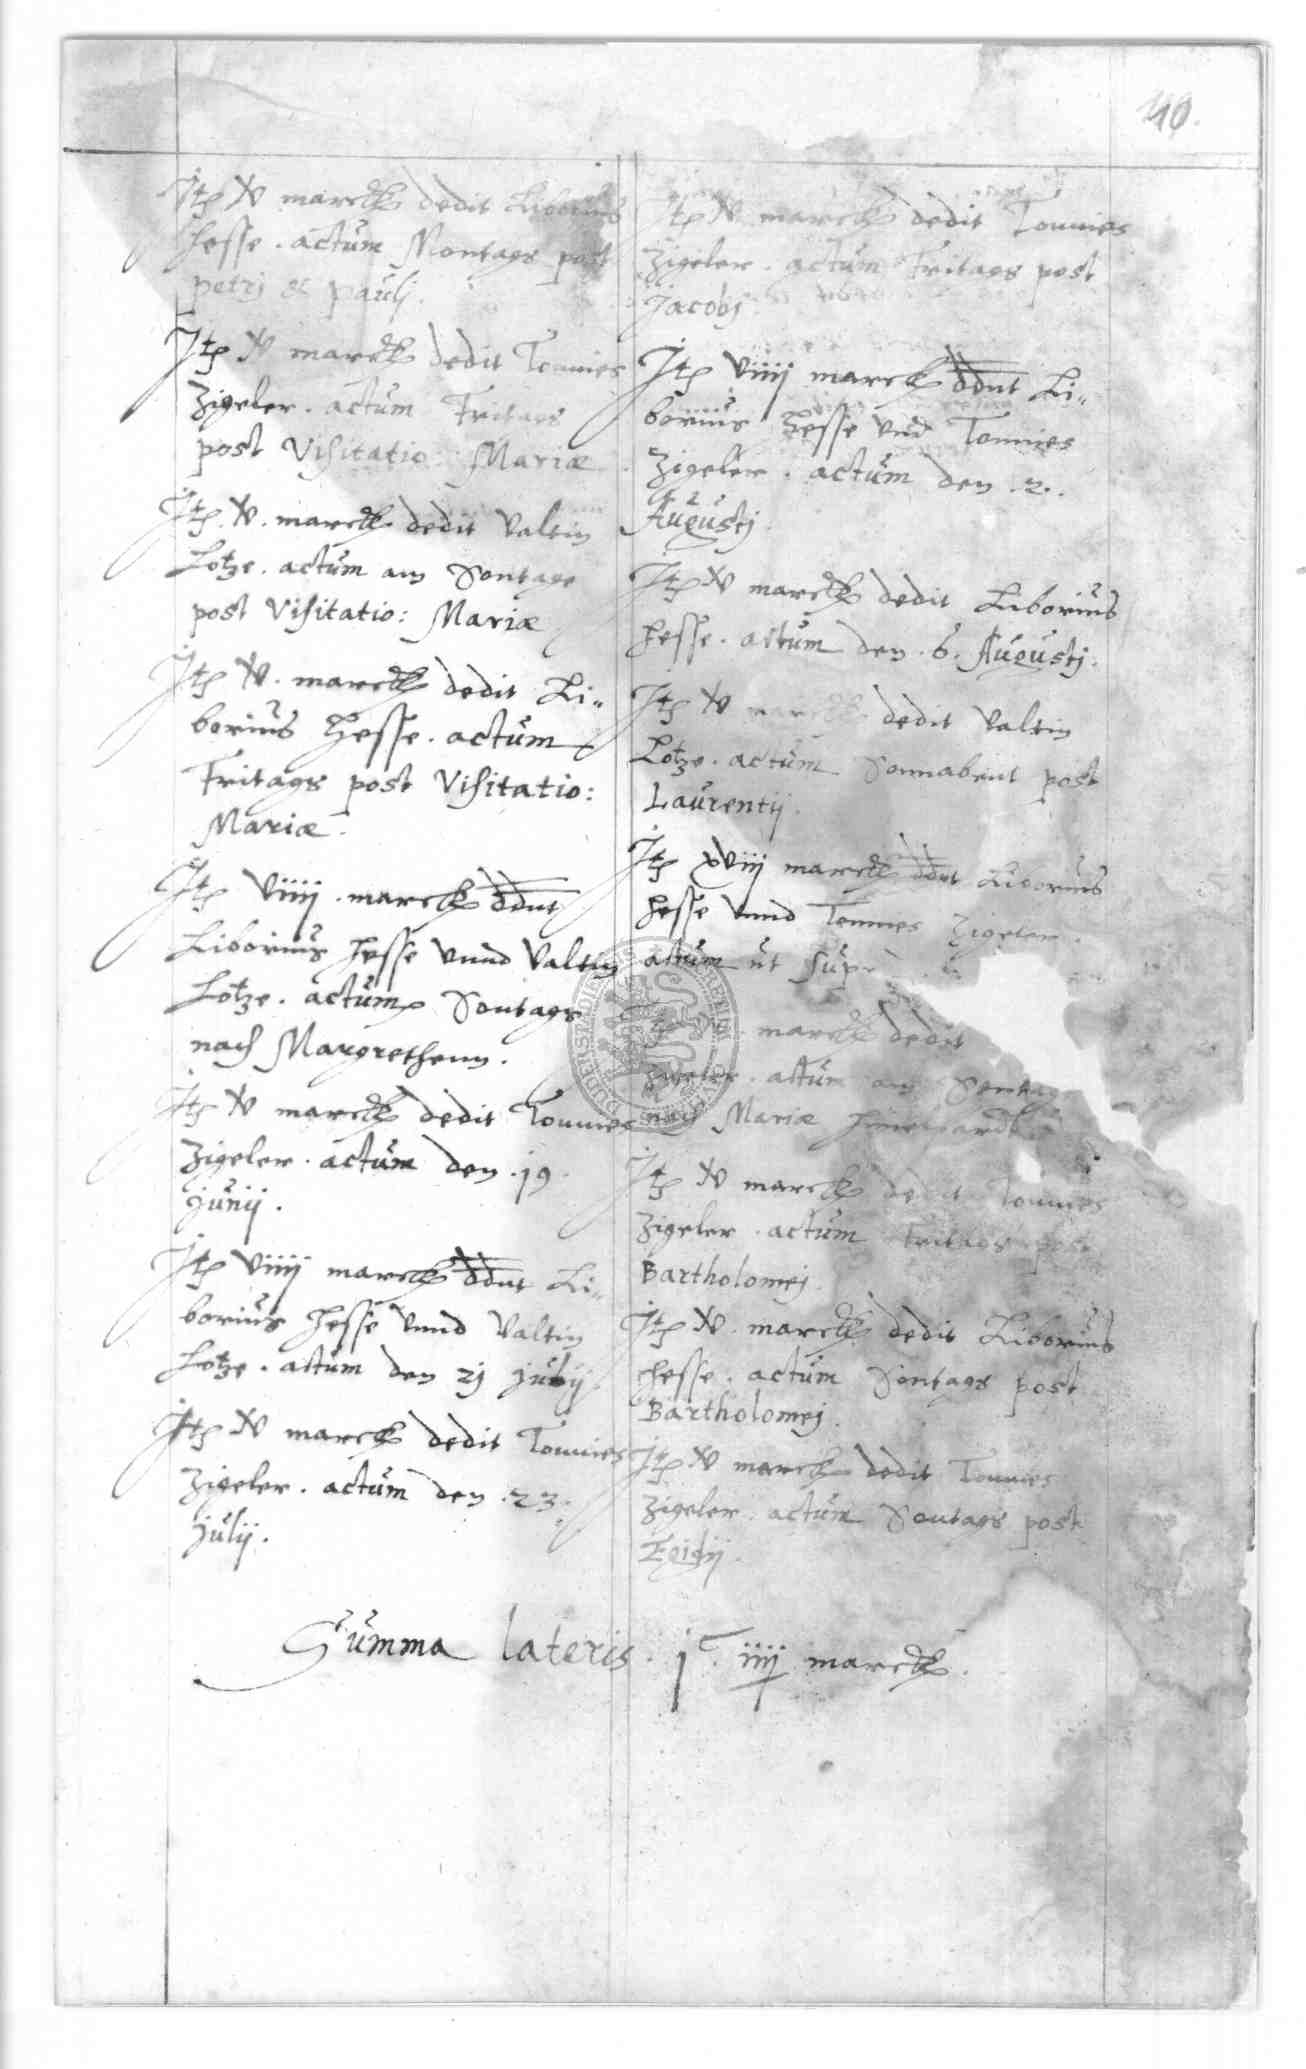 40.
Itē xv marck dedit Liborius
Hesse . actum Montags post
petri et pauli .
Itē xv marck dedit Tonnies
Zigeler . actum Fritags
post Visitatio: Mariæ
Itē . xv . marck dedit Valtin
Lotze . actum am Sontage
post Visitatio: Mariæ
Itē xv . marck dedit Li„
borius Hesse . actum
Fritags post Visitatio:
Mariæ .
Itē viiij . marck ddnt
Liborius Hesse unnd Valtin
Lotze . actum Sontags
nach Margrethenn .
Itē xv marck dedit Tonnies
Zigeler . actum den . 19 .
Junij .
Itē viiij marck ddnt Li„
borius Hesse unnd Valtin
Lotze . actum den 21 Julij
Itē xv marck dedit Tonnies
Zigeler . actum den . 23 .
Julij .
Itē xv marck dedit Tonnies
Zigeler . actum Fritags post
Jacobj
Itē viiij marck ddnt Li„
borius Hesse und Tonnies
Zigeler . actum den . 2 .
Augustj
Itē xv marck dedit Liborius
Hesse . actum den . 6 . Augustj .
Itē xv marck dedit Valtin
Lotze . actum Sonnabent post
Laurentij .
Itē xviij marck ddnt Liborius
Hesse unnd Tonnies Zigeler .
actum ut sup
marck dedit
Zigeler . actum am Sontag
nach Mariæ
Itē xv marck dedit Tonnies
Zigeler . actum Fritags post
Bartholomej
Itē xv . marck dedit Liborius
Hesse . actum Sontags post
Bartholomej .
Itē xv marck dedit Tonnies
Zigeler . actum Sontags post
Egidij .
Summa lateris . jc iiij marck .